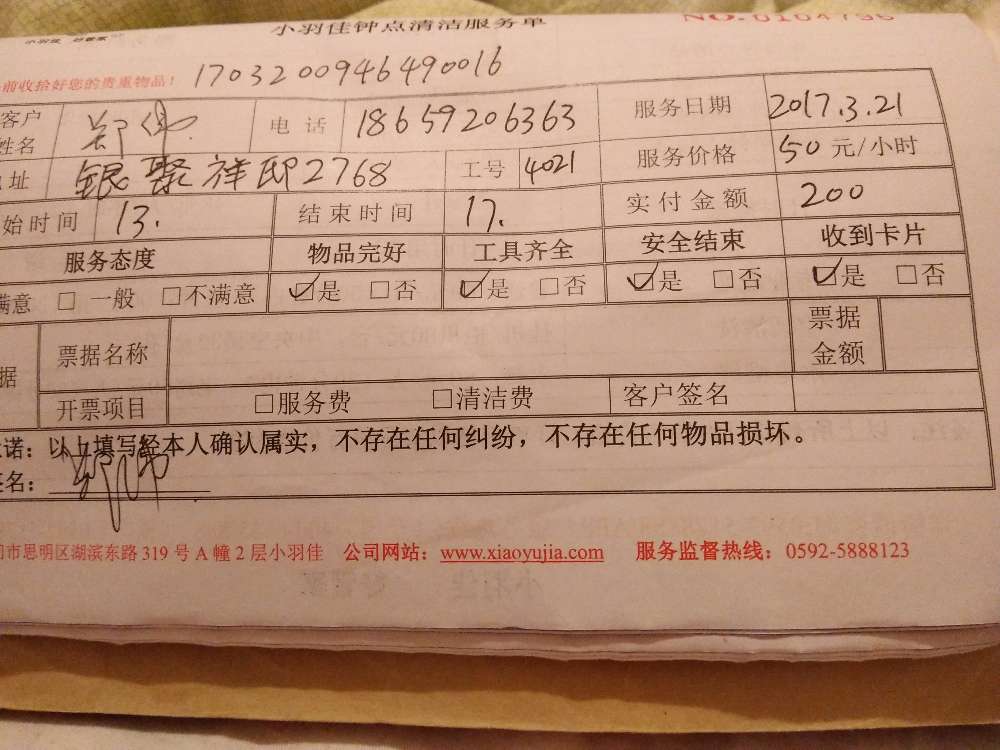 小羽佳钟点清洁服务单 NO. 0104796
小羽佳 好管家
前收拾好您的贵重物品! 1703200946490016
客户姓名 郑伟 电话 18659206363 服务日期 2017.3.21
址 银聚祥邸2768 工号 4021 服务价格 50元/小时
始时间 13. 结束时间 17. 实付金额 200
服务态度 物品完好 工具齐全 安全结束 收到卡片
满意 □一般 □不满意 ☑是 □否 ☑是 □否 ☑是 □否 ☑是 □否
据 票据名称 票据金额
开票项目 □服务费 □清洁费 客户签名
诺:以上填写经本人确认属实,不存在任何纠纷,不存在任何物品损坏。
签名: 郑伟
市思明区湖滨东路 319 号 A 幢 2 层小羽佳 公司网站:www.xiaoyujia.com 服务监督热线:0592-5888123